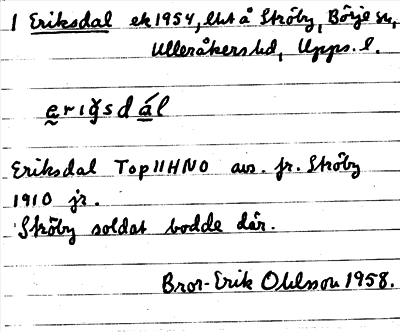 1 Eriksdal ek 1954, lht å Ströby, Börje sn,
Ulleråkers hd, Upps. l.
e̲rıǧsdá̲l
Eriksdal Top11HNO avs. fr. Ströby
1910 jr.
Ströby soldat bodde där.
Bror-Erik Ohlsson 1958.